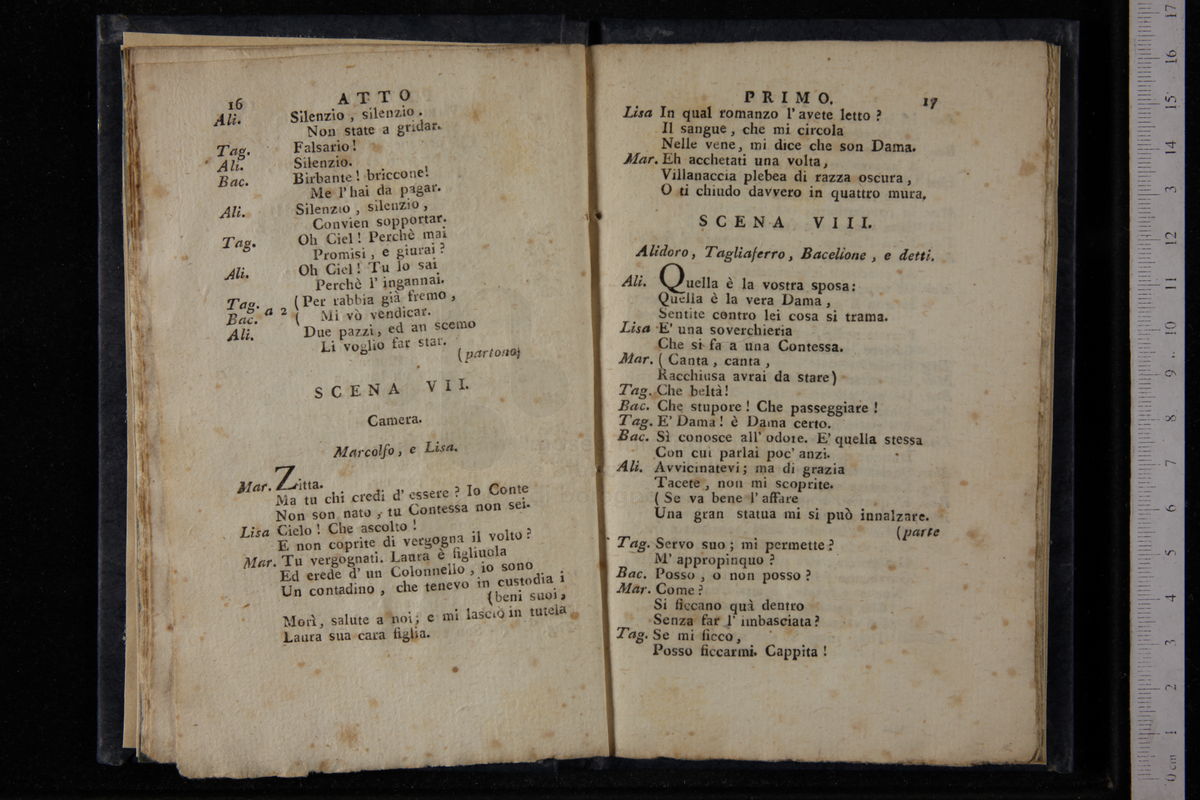 16 ATTO
Ali. Silenzio, silenzio.
Non state a gridar.
Tag. Falsario!
Ali. Silenzio.
Bac. Birbante! briccone!
Me l'hai da pagar.
Ali. Silenzio, silenzio,
Convien sopportar.
Tag. Oh Ciel! Perchè mai
Promisi, e giurai?
Ali. Oh Ciel! Tu lo sai
Perchè l'ingannai.
Tag. (Per rabbia già fremo,
Bac. a 2 ( Mi vò vendicar.
Ali. Due pazzi, ed an scemo
Li voglio far star.
(partono)
SCENA VII.
Camera.
Marcolfo, e Lisa.
Mar. Zitta.
Ma tu chi credi d'essere? Io Conte
Non son nato, tu Contessa non sei.
Lisa Cielo! Che ascolto!
E non coprite di vergogna il volto?
Mar. Tu vergognati. Laura è figliuola
Ed erede d'un Colonnello, io sono
Un contadino, che tenevo in custodia i
(beni suoi,
Morì, salute a noi; e mi lasciò in tutela
Laura sua cara figlia.
PRIMO. 17
Lisa In qual romanzo l'avete letto?
Il sangue, che mi circola
Nelle vene, mi dice che son Dama.
Mar. Eh acchetati una volta,
Villanaccia plebea di razza oscura,
O ti chiudo davvero in quattro mura.
SCENA VIII.
Alidoro, Tagliaferro, Bacellone, e detti.
Ali. Quella è la vostra sposa:
Quella è la vera Dama,
Sentite contro lei cosa si trama.
Lisa E' una soverchieria
Che si fa a una Contessa.
Mar. (Canta, canta,
Racchiusa avrai da stare)
Tag. Che beltà!
Bac. Che stupore! Che passeggiare!
Tag. E' Dama! è Dama certo.
Bac. Sì conosce all'odore. E' quella stessa
Con cui parlai poc'anzi.
Ali. Avvicinatevi; ma di grazia
Tacete, non mi scoprite.
(Se va bene l'affare
Una gran statua mi si può innalzare.
(parte
Tag. Servo suo; mi permette?
M'appropinquo?
Bac. Posso, o non posso?
Mar. Come?
Si ficcano quà dentro
Senza far l'imbasciata?
Tag. Se mi ficco,
Posso ficcarmi. Cappita!
0 cm 1 2 3 4 5 6 7 8 9 10 11 12 13 14 15 16 17